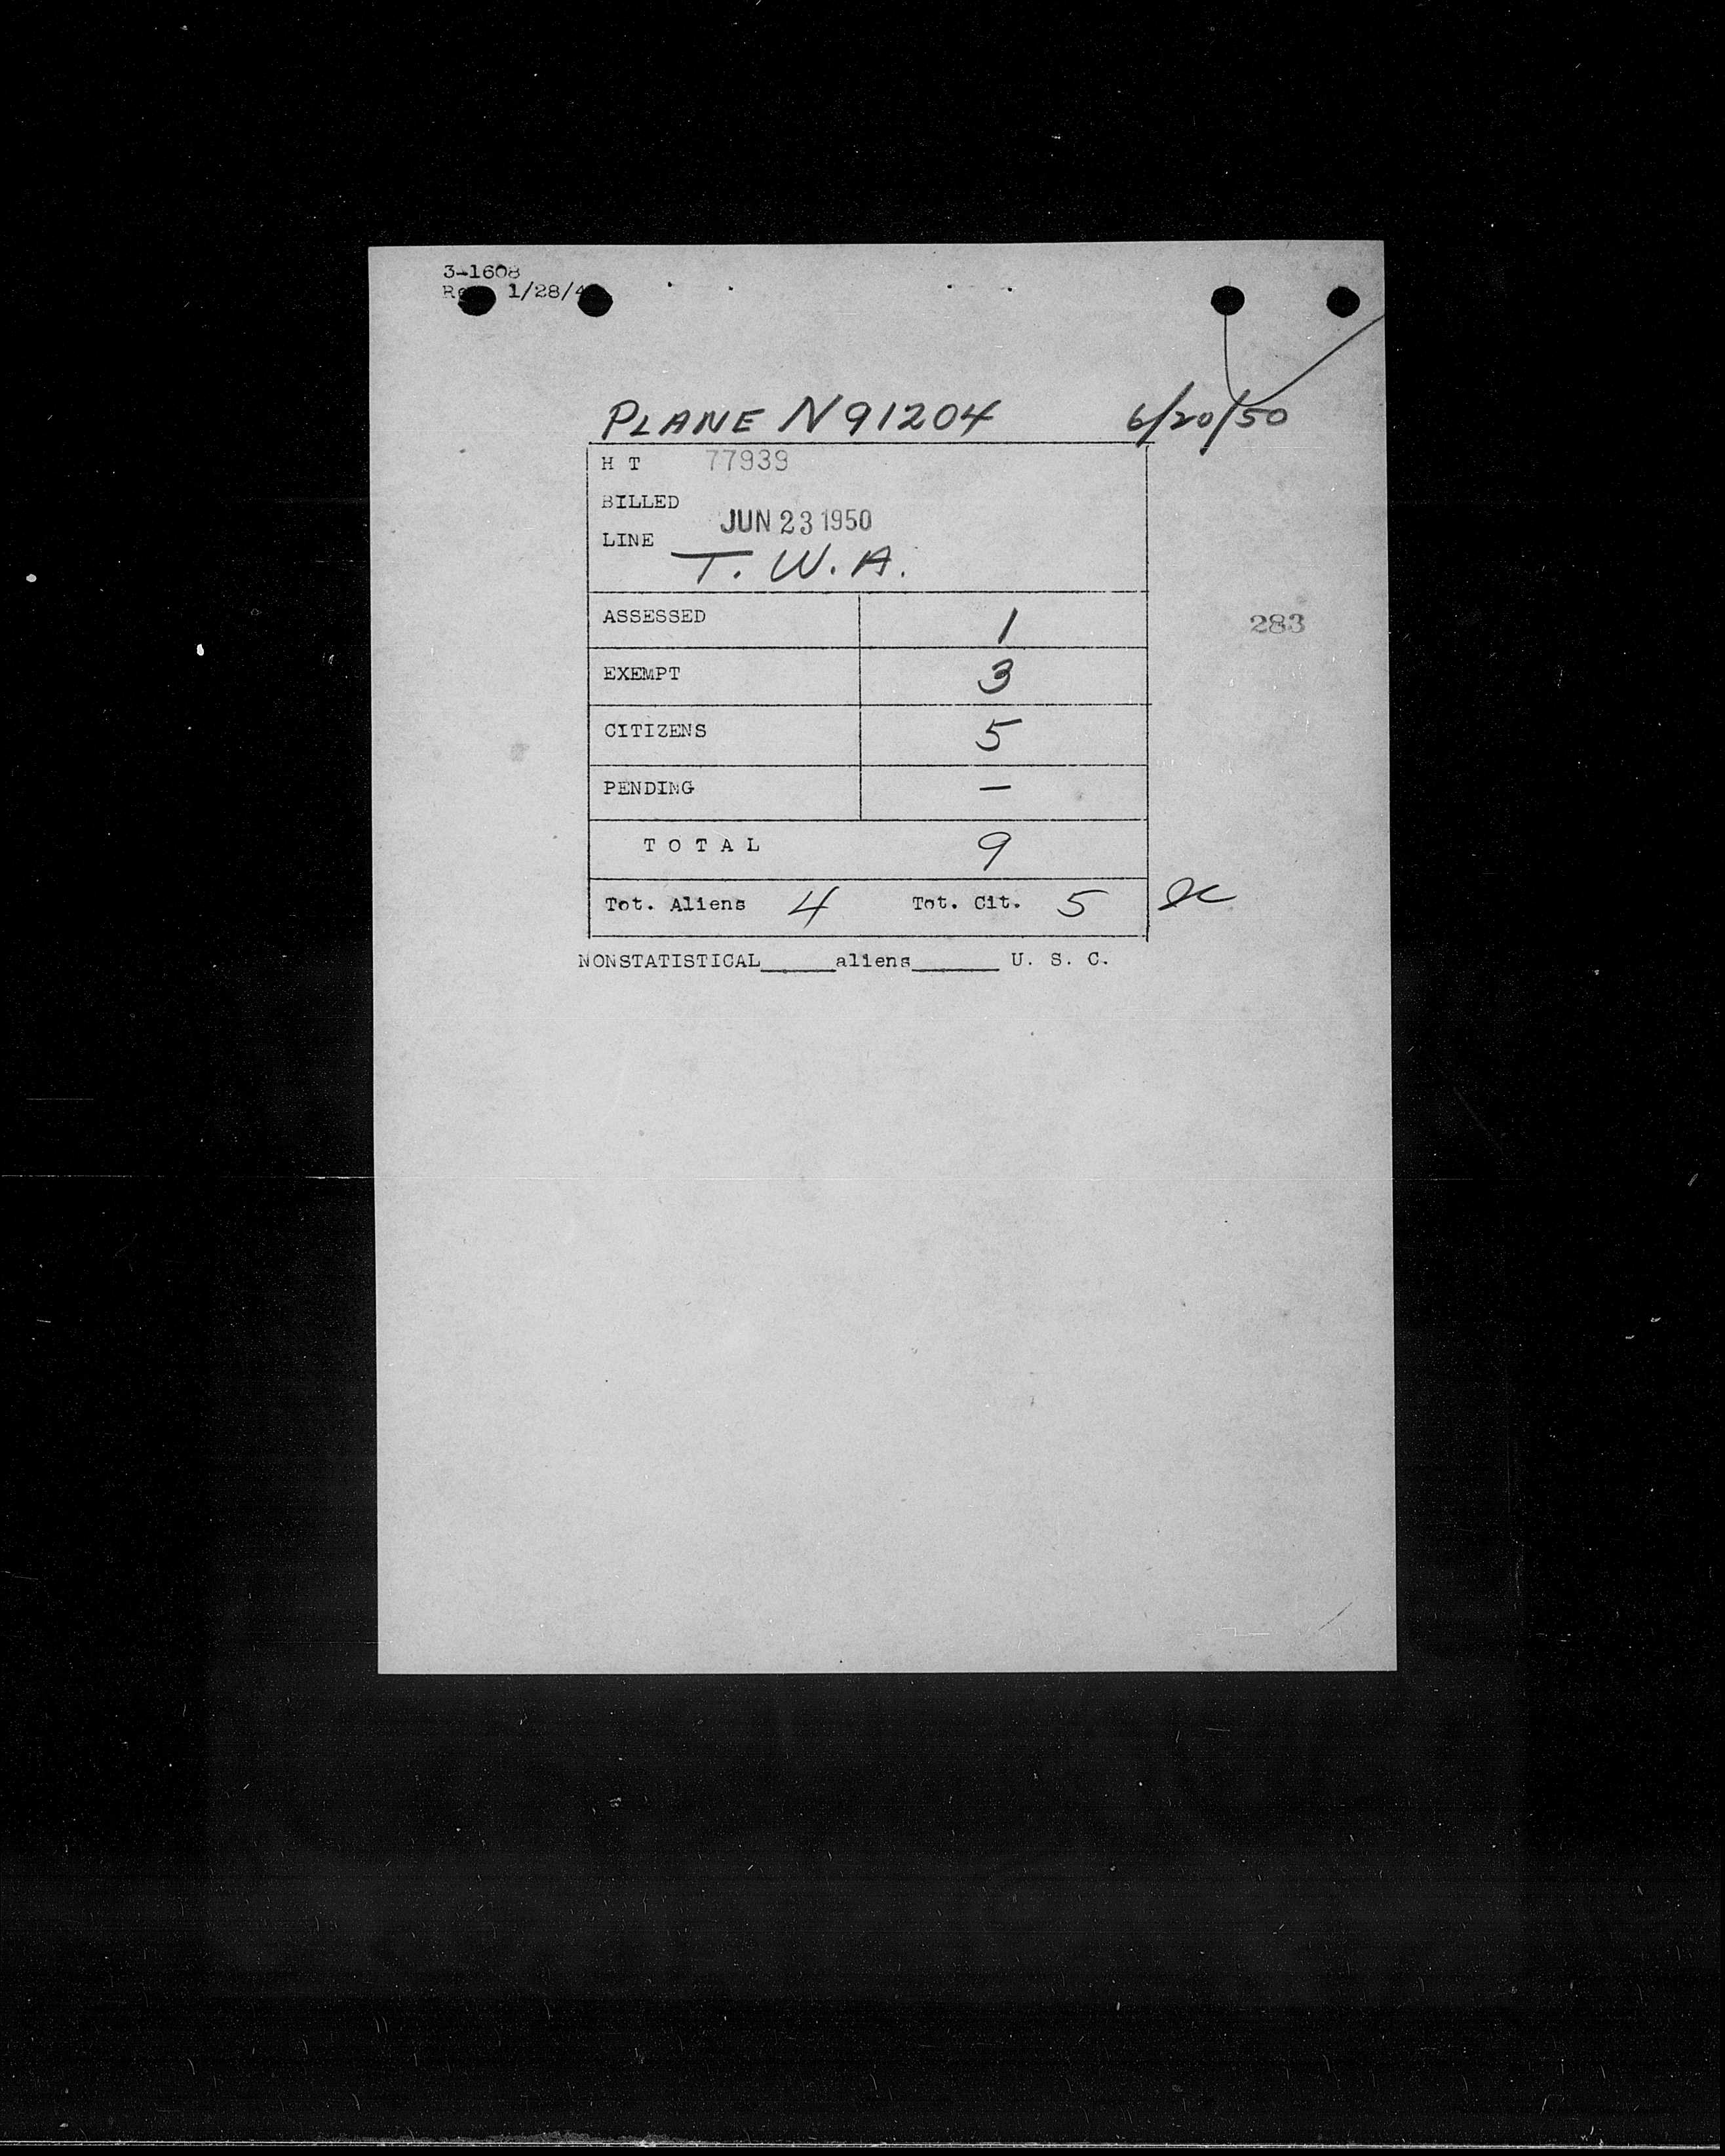 3-1608
1/28/4
PLANE N91204 6/20/50
H T 77939
BILLED
JUN 23 1950
LINE
T. W. A.
ASSESSED 1
283
EXEMPT 3
CITIZENS 5
PENDING —
T O T A L 9
Tot. Aliens 4 Tot. Cit. 5
NONSTATISTICAL_____aliens______ U. S. C.